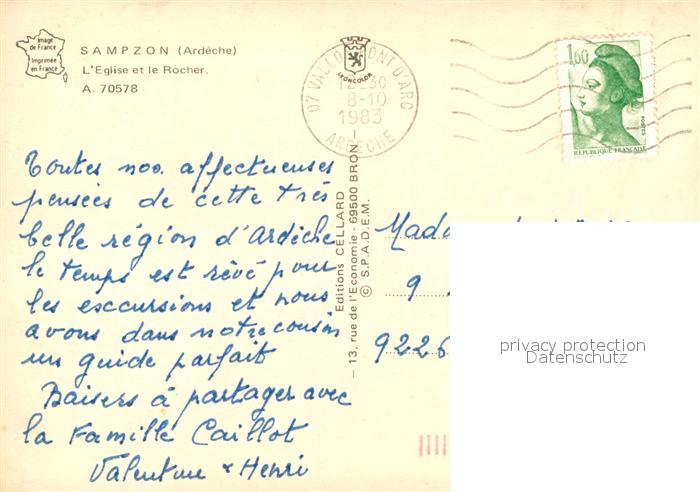 Image
de France
Imprimée
en France
SAMPZON (Ardèche)
L'Eglise et le Rocher.
A. 70578
LYONCOLOR
07 VALLON PONT D'ARC
12-30
8-10
1983
ARDECHE
1,60
POSTES
REPUBLIQUE FRANÇAISE
Toutes nos affectueuses
pensées de cette très
belle région d'Ardèche
le temps est rêvé pour
les esccursions et nous
avons dans notre cousin
un guide parfait
Baisers à partager avec
la Famille Caillot
Valentine & Henri
Editions CELLARD
– 13, rue de l'Economie - 69500 BRON –
© S.P.A.D.E.M.
Mada
9
9226
privacy protection
Datenschutz